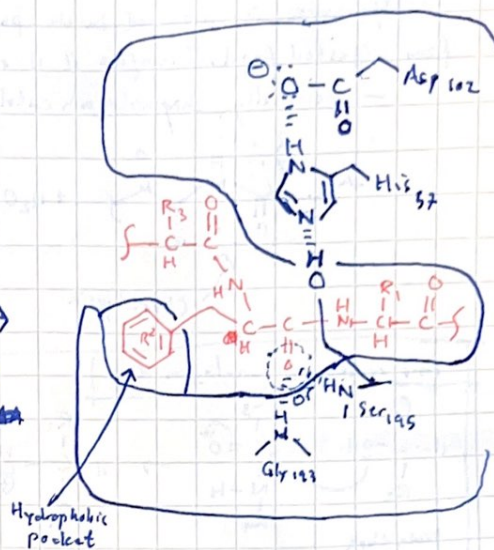 ⊖
:O – C
Asp 102
O
H
N
His 57
N
H
O
R3 O
C C
H
N
H
H O
R1
C C N C C
H H
R2
HN
Ser195
H
N
Gly 193
Hydrophobic
pocket